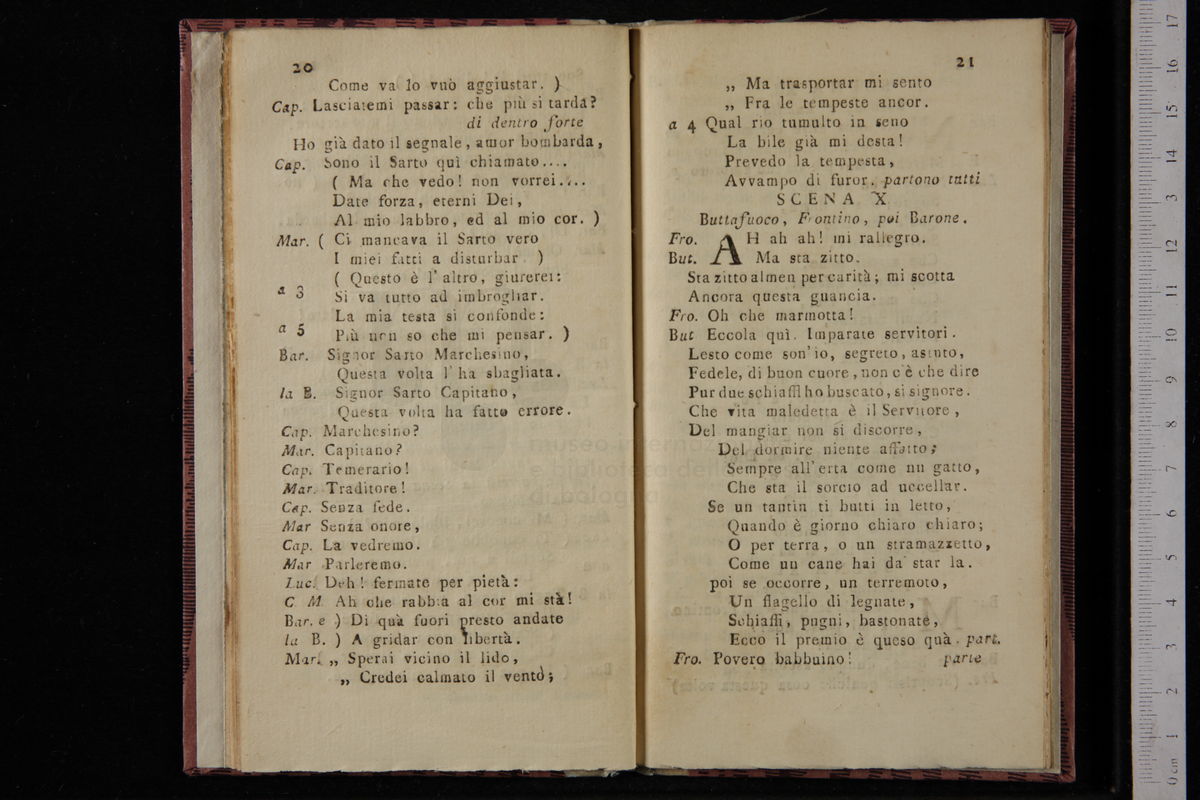 20
Come va lo vuò aggiustar. )
Cap. Lasciatemi passar: che più si tarda?
di dentro forte
Ho già dato il segnale, amor bombarda,
Cap. Sono il Sarto quì chiamato....
( Ma che vedo! non vorrei....
Date forza, eterni Dei,
Al mio labbro, ed al mio cor. )
Mar. ( Ci mancava il Sarto vero
I miei fatti a disturbar )
( Questo è l' altro, giurerei:
a 3 Si va tutto ad imbrogliar.
La mia testa si confonde:
a 5 Più non so che mi pensar. )
Bar. Signor Sarto Marchesino,
Questa volta l' ha sbagliata.
la B. Signor Sarto Capitano,
Questa volta ha fatto errore.
Cap. Marchesino?
Mar. Capitano?
Cap. Temerario!
Mar. Traditore!
Cap. Senza fede.
Mar Senza onore,
Cap. La vedremo.
Mar Parleremo.
Luc. Deh! fermate per pietà:
C M. Ah che rabbia al cor mi stà!
Bar. e ) Di quà fuori presto andate
la B. ) A gridar con libertà.
Mar. „ Sperai vicino il lido,
„ Credei calmato il vento;
21
„ Ma trasportar mi sento
„ Fra le tempeste ancor.
a 4 Qual rio tumulto in seno
La bile già mi desta!
Prevedo la tempesta,
Avvampo di furor. partono tutti
SCENA X
Buttafuoco, Frontino, poi Barone.
Fro. AH ah ah! mi rallegro.
But. Ma sta zitto.
Sta zitto almen per carità; mi scotta
Ancora questa guancia.
Fro. Oh che marmotta!
But Eccola quì. Imparate servitori.
Lesto come son' io, segreto, astuto,
Fedele, di buon cuore, non c'è che dire
Pur due schiaffi ho buscato, si signore.
Che vita maledetta è il Servitore,
Del mangiar non si discorre,
Del dormire niente affatto;
Sempre all' erta come un gatto,
Che sta il sorcio ad uccellar.
Se un tantin ti butti in letto,
Quando è giorno chiaro chiaro;
O per terra, o un stramazzetto,
Come un cane hai da star la.
poi se occorre, un terremoto,
Un flagello di legnate,
Schiaffi, pugni, bastonate,
Ecco il premio è queso quà. part.
Fro. Povero babbuino! parte